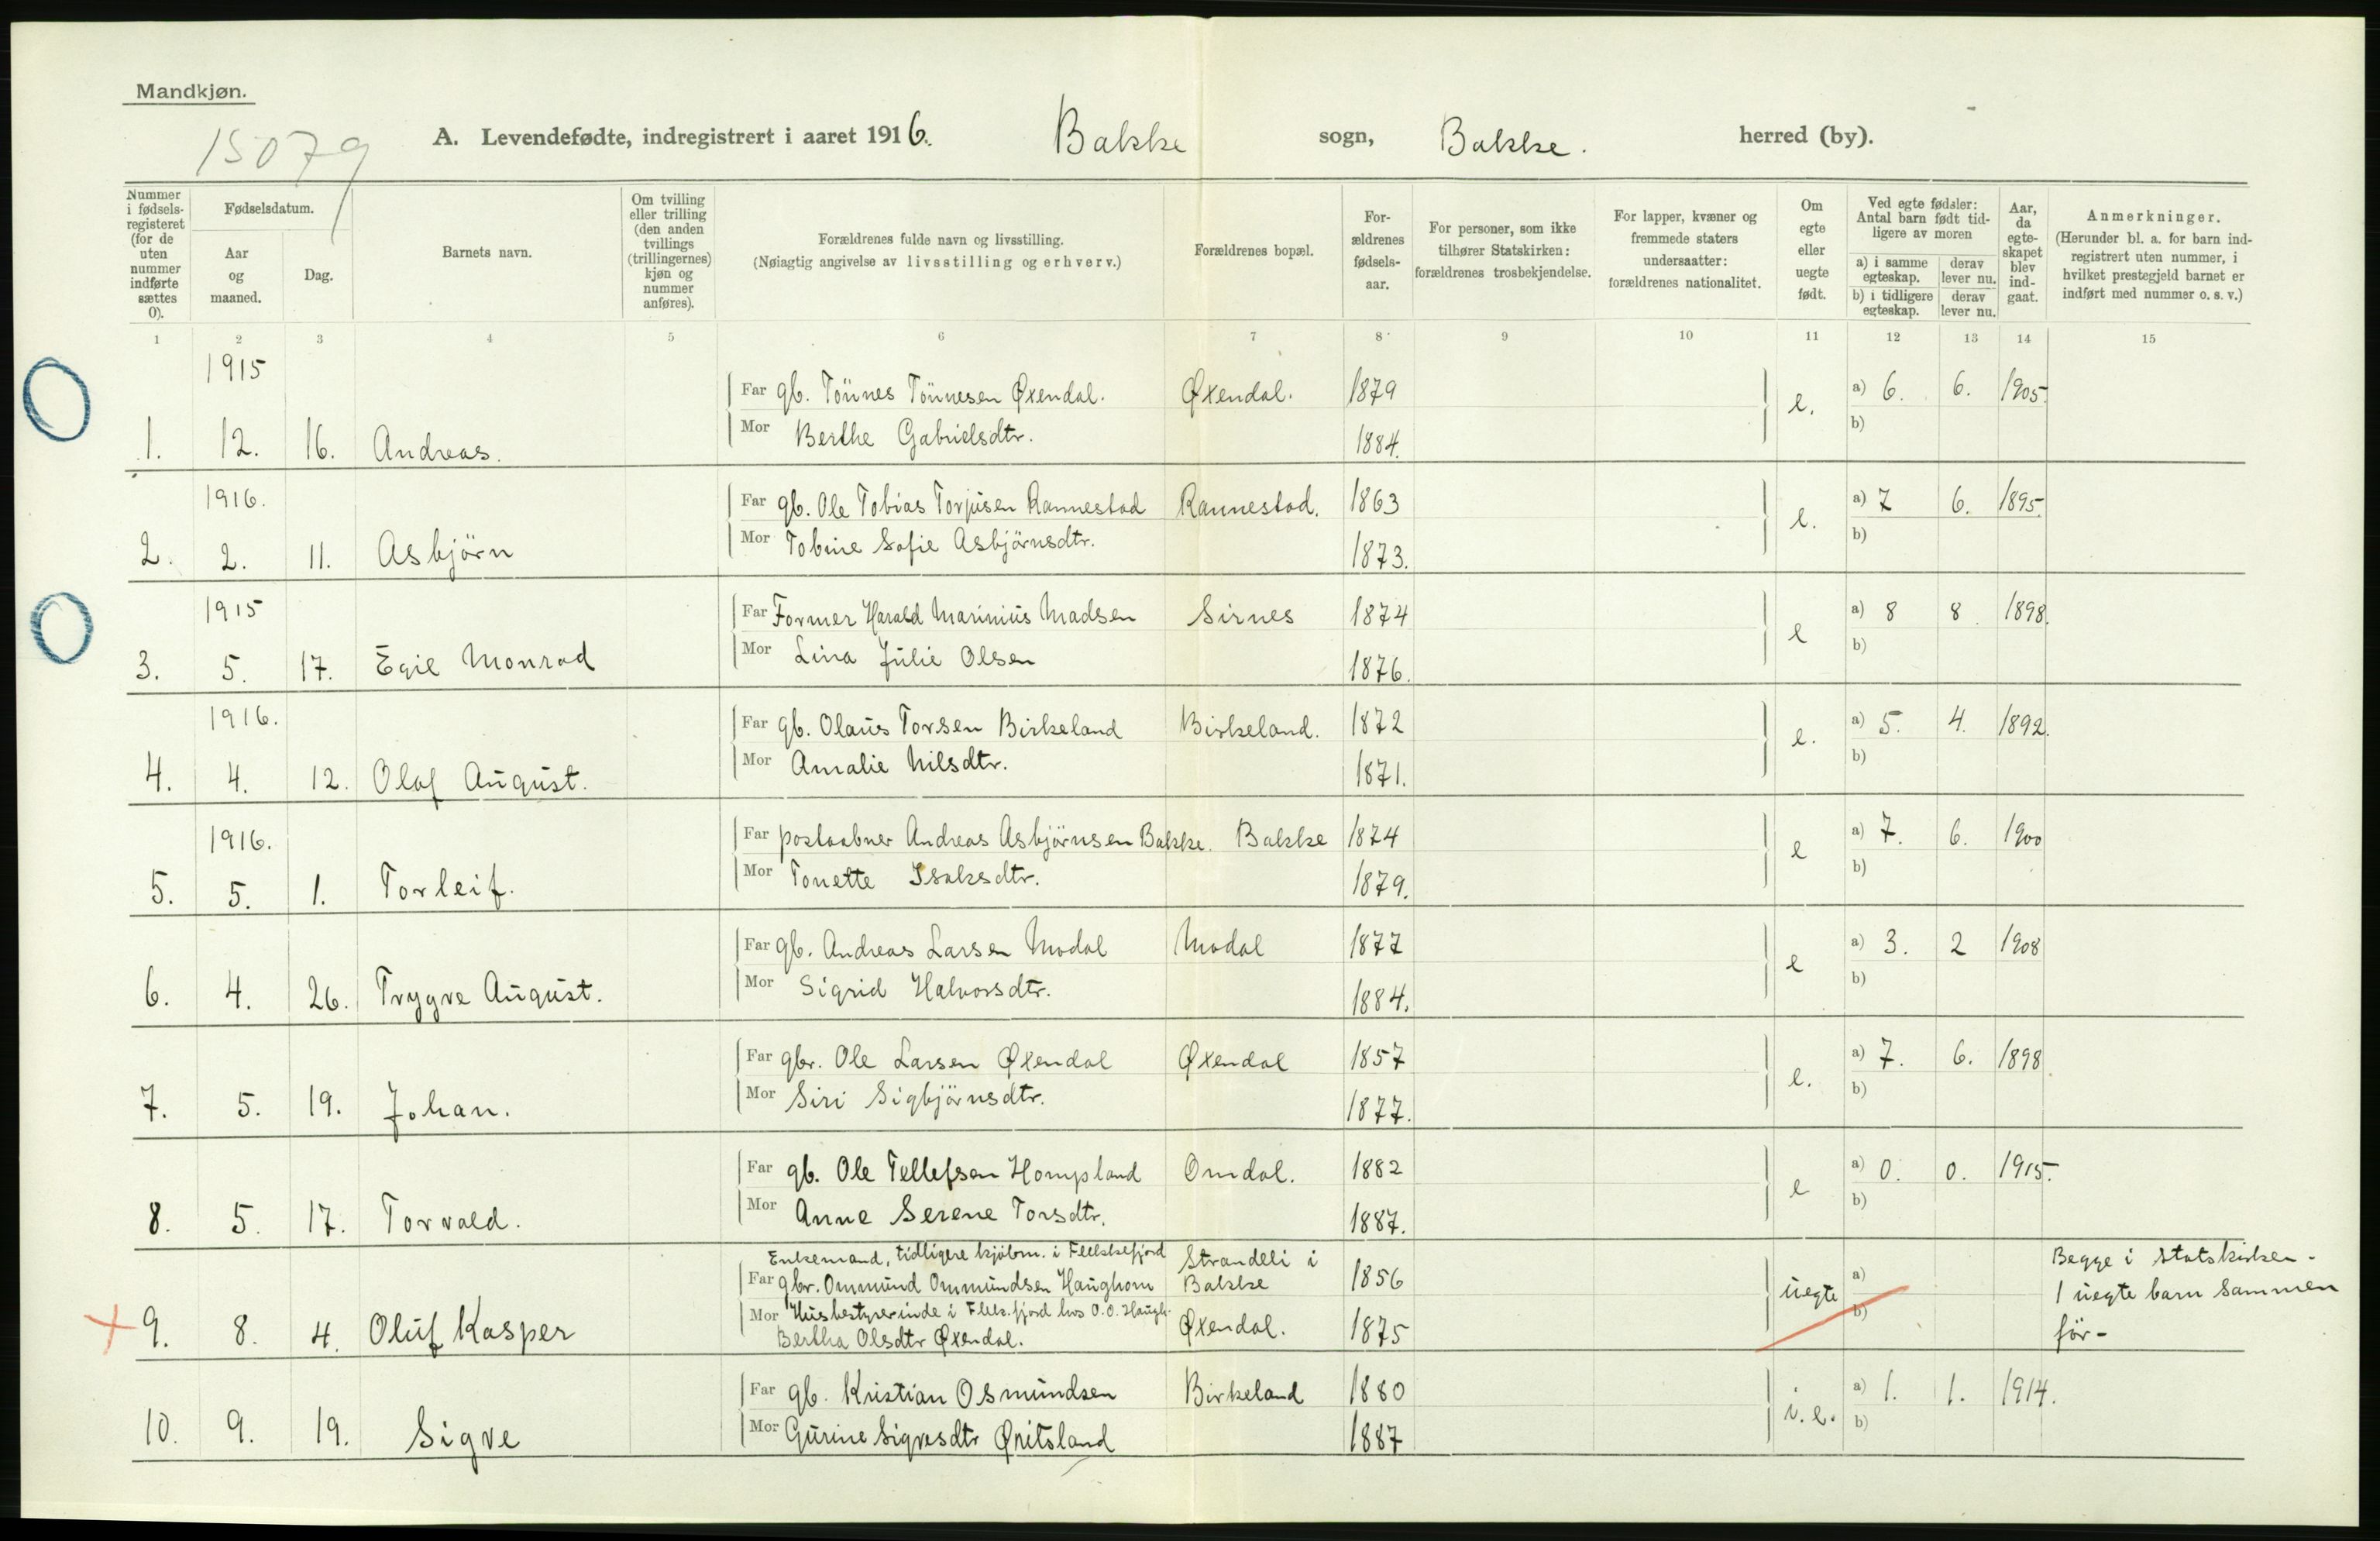 Mandkjøn.
15079
A. Levendefødte, indregistrert i aaret 1916. Bakke sogn, Bakke. herred (by).
Nummer i fødselsregisteret (for de uten nummer indførte sættes 0).
Fødselsdatum.
Aar og maaned.
Dag.
Barnets navn.
Om tvilling eller trilling (den anden tvillings (trillingernes) kjøn og nummer anføres).
Forældrenes fulde navn og livsstilling.
(Nøiagtig angivelse av livsstilling og erhverv.)
Forældrenes bopæl.
Forældrenes fødselsaar.
For personer, som ikke tilhører Statskirken: forældrenes trosbekjendelse.
For lapper, kvæner og fremmede staters undersaatter: forældrenes nationalitet.
Om egte eller uegte født.
Ved egte fødsler: Antal barn født tidligere av moren
a) i samme egteskap. derav lever nu.
b) i tidligere egteskap. derav lever nu.
Aar, da egteskapet blev indgaat.
Anmerkninger.
(Herunder bl. a. for barn indregistrert uten nummer, i hvilket prestegjeld barnet er indført med nummer o. s. v.)
1 2 3 4 5 6 7 8 9 10 11 12 13 14 15
1915
Far gb. Tönnes Tönnesen Øxendal. Øxendal. 1879 e. a) 6. 6. 1905.
1. 12. 16. Andreas. Mor Berthe Gabrielsdtr. 1884. b)
1916.
Far gb. Ole Tobias Torjusen Rannestad Rannestad. 1863 e. a) 7 6. 1895.
2. 2. 11. Asbjörn Mor Tobine Sofie Asbjörnsdtr. 1873. b)
1915
Far Former Harald Marinius Madsen Sirnes 1874 e a) 8 8. 1898.
3. 5. 17. Egil Monrad Mor Lina Julie Olsen 1876. b)
1916.
Far gb. Olaus Torsen Birkeland Birkeland. 1872 e. a) 5. 4. 1892.
4. 4. 12. Olaf August. Mor Amalie Nilsdtr. 1871. b)
1916.
Far postaabner Andreas Asbjörnsen Bakke. Bakke 1874 e a) 7. 6. 1900
5. 5. 1. Torleif. Mor Tonette Isaksdtr. 1879. b)
Far gb. Andreas Larsen Modal Modal 1877 e a) 3. 2 1908
6. 4. 26. Trygve August. Mor Sigrid Halvorsdtr. 1884. b)
Far gbr. Ole Larsen Øxendal Øxendal 1857 e. a) 7. 6. 1898.
7. 5. 19. Johan. Mor Siri Sigbjörnsdtr. 1877. b)
Far gb. Ole Tellefsen Hompland Omdal. 1882 e a) 0. 0. 1915.
8. 5. 17. Torvald. Mor Anne Serene Torsdtr. 1887. b)
Enkemand, tidligere kjöbm. i Flekkefjord Strandeli i Begge i statskirken -
Far gbr. Ommund Ommundsen Haughom Bakke 1856 uegte a) 1 uegte barn sammen
Mor Husbestyrerinde i Flek.fjord hos O.O. Haugh. b) för -
9. 8. 4. Oluf Kasper Bertha Olsdtr Øxendal. Øxendal. 1875
Far gb. Kristian Osmundsen Birkeland 1880 i. e. a) 1. 1. 1914.
10. 9. 19. Sigve Mor Gurine Sigvesdtr Øritsland 1887 b)